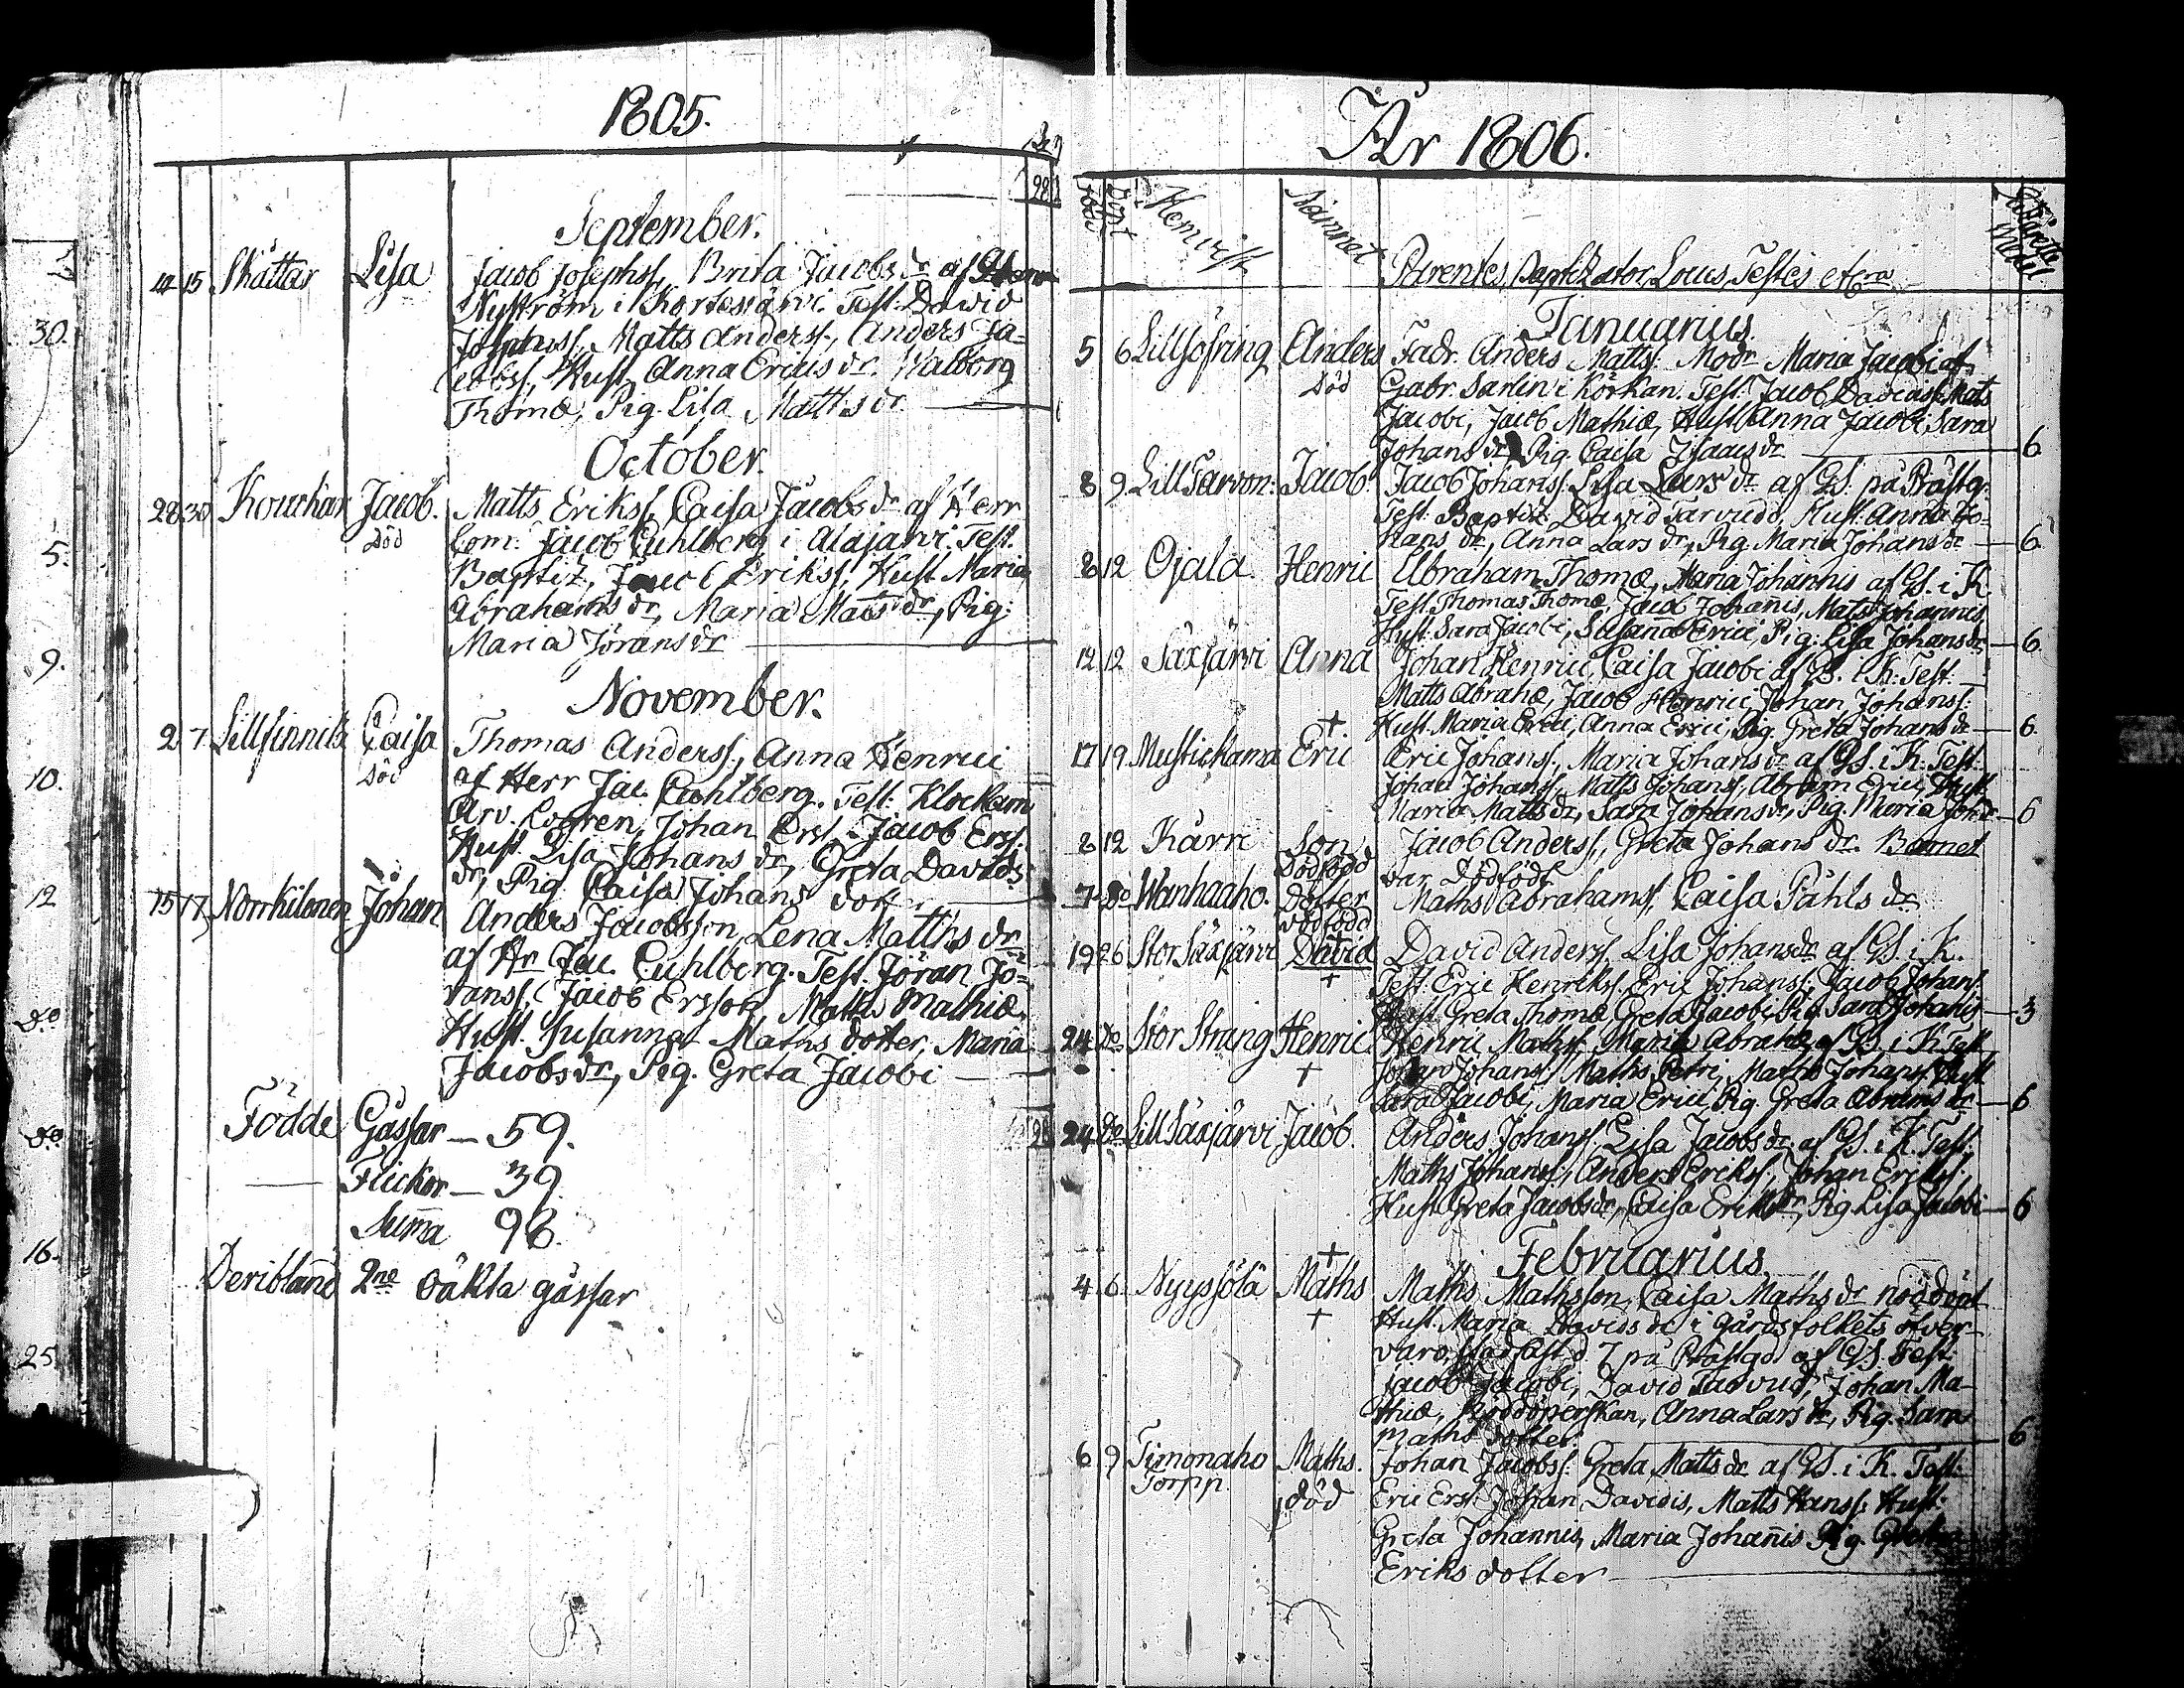 1805.
September.
14 15 Skattar Lisa Jacob Josephss, Brita Jacobs dr af Herr
Nyström i Kortesjärvi. Test. David
Josephss, Matts Anderss, Anders Ja-
cobss, Hust. Anna Ericus dr. Walborg
Thomæ, Pig. Lisa Matts dr
October.
28 30 Jacob. Matts Erikss, Caisa Jacobs dr af Herr
Död Com. Jacob Cuhlberg i Alajärvi. Test.
Baptiz, Jacob Erikss, Hust. Maria
Abrahams dr, Maria Mats dr, Pig.
Maria Jörans dr
November.
2 7 Lillfinnilä Caisa Thomas Anderss, Anna Henrici
Död af Herr Jac. Cuhlberg. Test. Klockarn
Arv. Lofgren, Johan Erss, Jacob Erss.
Hust. Lisa Johans dr, Greta Davids
dr, Pig. Caisa Johans dott.
15 17 Norrkilonen Johan Anders Jacobsson, Lena Matths dr
af Hr Jac. Cuhlberg. Test. Jöran Jö-
ranss, Jacob Ersson, Matths Mathiæ,
Hust. Susanna Maths dotter, Maria
Jacobs dr, Pig. Greta Jacobi
Födde Gåssar — 59.
— Flickor — 39
Suma 98.
Deribland 2ne oäkta gåssar
98
30.
5.
9.
10.
12
do
do
16.
25
År 1806.
Född Döpt Hemvist Namnet Parentes, Baptizator, Locus, Testes etcra
Januarius
5 6 Lillsöfring Anders Fadr. Anders Mattss. Modr Maria Jacobi af
Död Gabr. Sarlin i Körkan. Test. Jacob Davidiss, Mats
Jacobi, Jacob Mathiæ, Hust. Anna Jacobi, Sara
Johans dr, Pig. Caisa Isaacs dr — 6
8 9 Lill Tarvon: Jacob. Jacob Johanss. Lisa Lars dr af GS. på Prästg.
Test. Baptiz. David Tarvudd, Hust. Anna Jo-
hans dr, Anna Lars dr, Pig. Maria Johans dr — 6
8 12 Ojala. Henric Abraham Thomæ, Maria Johannis af GS. i K
Test. Thomas Thomæ, Jacob Johañis, Mats Johannis,
Hust. Sara Jacobi, Susana Erici, Pig. Lisa Johans dr — 6
12 12 Säxjärvi Anna Johan Henrici, Caisa Jacobi af GS. i K. Test.
Matts Abrahæ, Jacob Henrici, Johan Johanss.
Hust. Maria Erici, Anna Erici, Pig. Greta Johans dr — 6
17 19 Mustickama + Eric Eric Johanss, Maria Johans dr af GS. i K. Test.
Johan Johanss, Matts Johanss, Abram Erici, Hust.
Maria Matts dr, Sara Johans dr, Pig. Maria Joh dr — 6
8 12 Kärri Son Jacob Anderss, Greta Johans dr. Barnet
Dödfödd var Dödfödt
7 do Wanhaaho. Dotter Maths Abrahamss, Caisa Påhls dr
dödfödd
19 26 Stor Säxjärvi David David Anderss. Lisa Johans dr af GS. i K.
+ Test. Eric Henrikss. Eric Johanss, Jacob Johans.
Hust. Greta Thomæ, Greta Jacobi, Pig. Sara Johanis — 3
24 do Stor Strang Henric Henric Mathss. Maria Abrahæ af GS. i K. Test.
+ Johan Johanss, Maths Petri, Maths Johanss, Hust.
Sara Jacobi, Maria Erici, Pig. Greta Abrams dr — 6
24 do Lill Säxjärvi Jacob. Anders Johanss. Lisa Jacobs dr af GS. i K. Test.
Maths Johanss, Anders Erikss, Johan Erikss.
Hust. Greta Jacobs dr, Caisa Eriks dr, Pig. Lisa Jacobi — 6
Februarius
4 6 Nyyssölä + Maths Maths Mathsson, Caisa Maths dr nöddöpt
+ Hust. Maria Davids dr i gårdsfolkets öfver-
varo, stadfäst d. 7 på Prästgd af GS. Test.
Jacob Jacobi, David Tarvud, Johan Ma-
thiæ, Nöddöperskan, Anna Lars dr, Pig. Sara
Maths dotter — 6
6 9 Timonaho Maths. Johan Jacobss. Greta Matts dr af GS. i K. Test.
Torpp. död Eric Erss. Johan Davidis, Matts Hanss. Hust.
Greta Johannis, Maria Johañis Pig. Greta
Eriks dotter